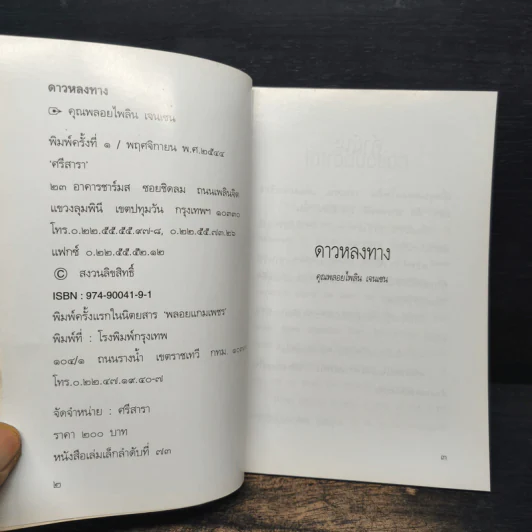 ดาวหลงทาง
คุณพลอยไพลิน เจนเซน
พิมพ์ครั้งที่ ๑ / พฤศจิกายน พ.ศ.๒๕๔๔
'ศรีสารา'
๒๓ อาคารชาร์มส ซอยชิดลม ถนนเพลินจิต
แขวงลุมพินี เขตปทุมวัน กรุงเทพฯ ๑๐๓๓๐
โทร.๐.๒๒.๕๕.๕๕.๑๗-๘, ๐.๒๒.๕๕.๗๓.๒๖
แฟกซ์ ๐.๒๒.๕๕.๕๒.๑๒
© สงวนลิขสิทธิ์
ISBN : 974-90041-9-1
พิมพ์ครั้งแรกในนิตยสาร 'พลอยแกมเพชร'
พิมพ์ที่ : โรงพิมพ์กรุงเทพ
๑๐๔/๑ ถนนรางน้ำ เขตราชเทวี กทม.
โทร.๐.๒๒.๔๗.๑๙.๔๐-๗
จัดจำหน่าย : ศรีสารา
ราคา ๒๐๐ บาท
หนังสือเล่มเล็กลำดับที่ ๗๓
๒
ดาวหลงทาง
คุณพลอยไพลิน เจนเซน
๓